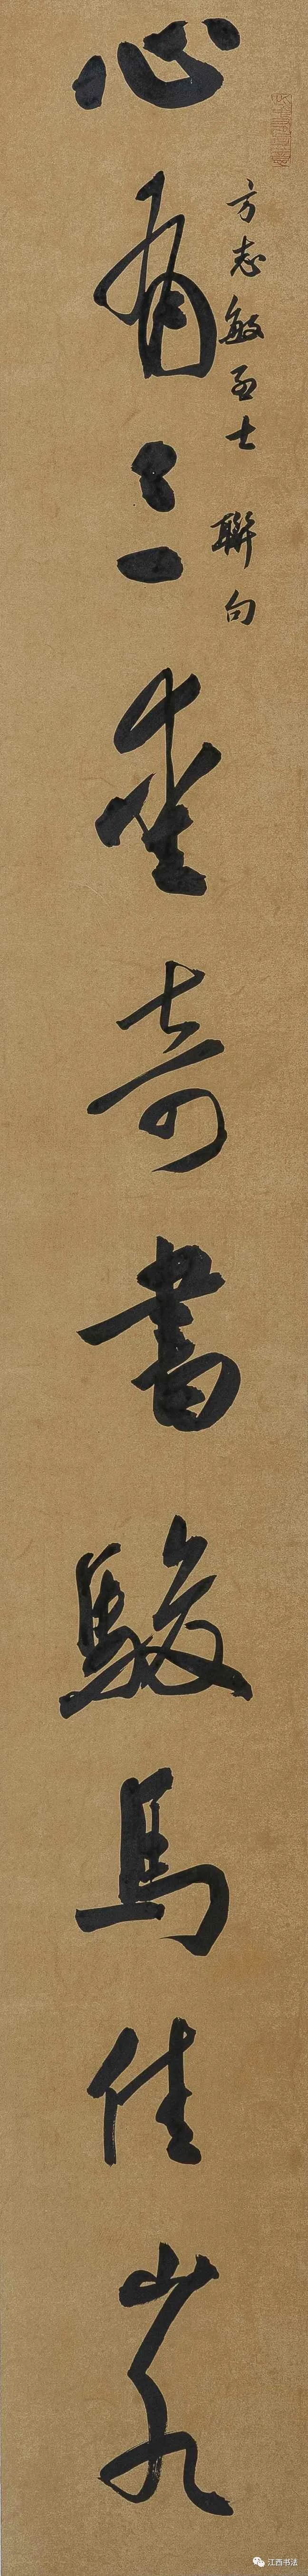 方志敏烈士 聯句
心有三愛奇書駿馬佳山水
江西书法